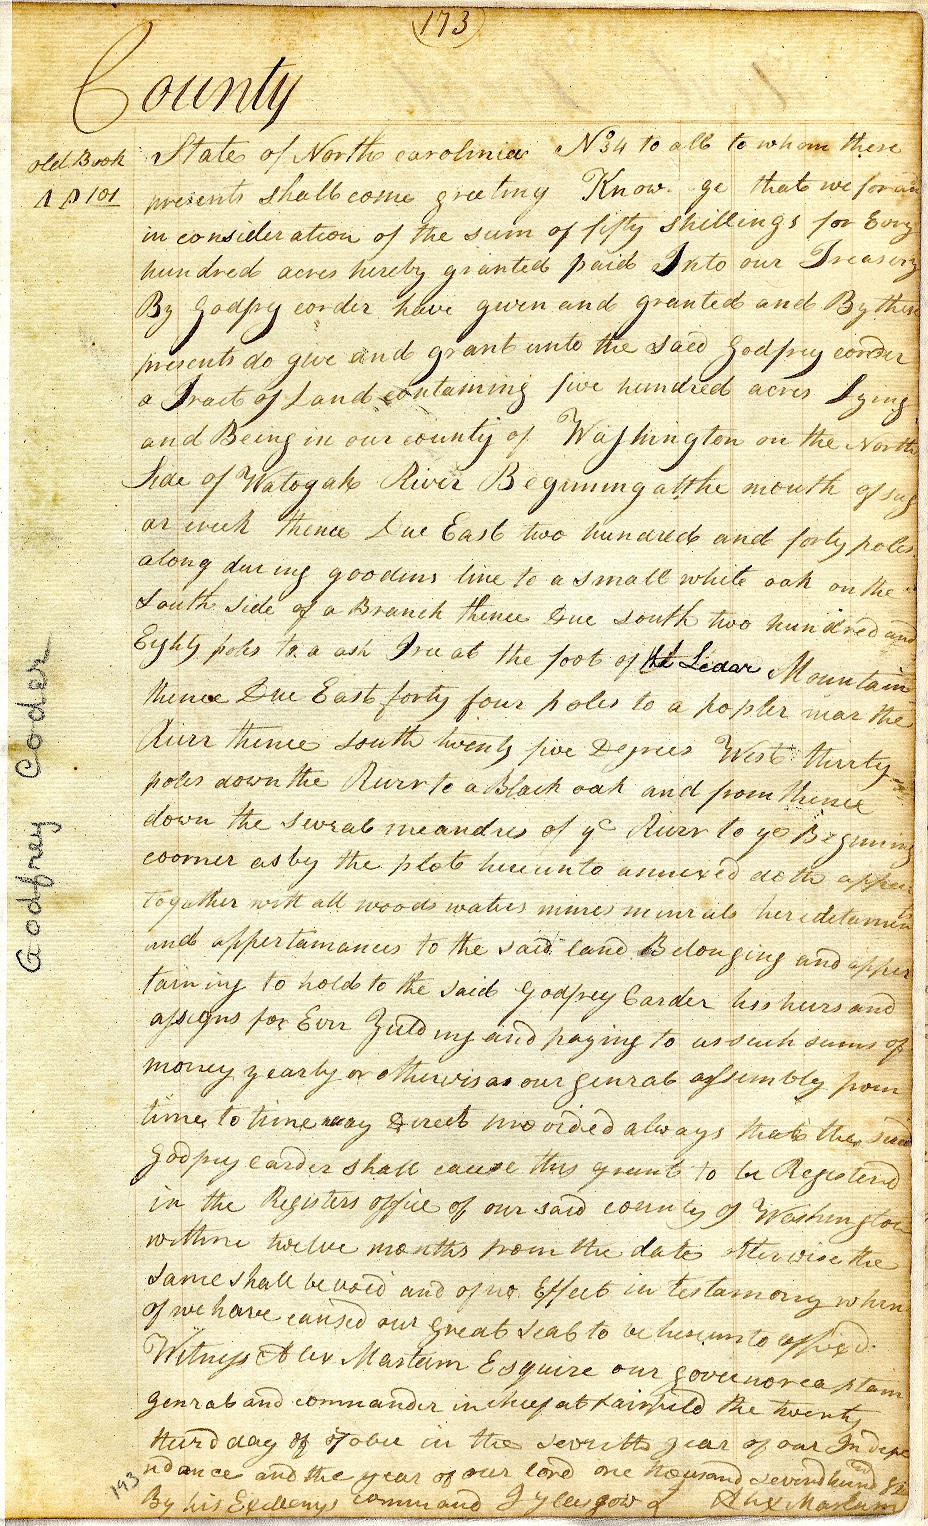 173
County
old Book
A p 101
State of North carolinia No 34 to all to whom these
presents shall come greeting Know ge that we for and
in consideration of the sum of fifty shillings for Every
hundred acres hereby granted paid Into our Treasery
By Godfrey corder have given and granted and By these
presents do give and grant unto the said Godfrey corder
a Tract of Land containing five hundred acres Lying
and Being in our county of Washington on the North
Side of Watogah River Beginning at the mouth of sug
ar creek thence Due East two hundred and forty poles
along during goodins line to a small white oak on the
South side of a Branch thence Due south two hundred and
Eighty poles to a ash Tree at the foot of Mountain
thence Due East forty four poles to a popler near the
River thence south twenty five Degrees West thirty
poles down the River to a Black oak and from thence
down the several meandres of ye River to ye Beginning
coorner as by the plot hereunto annexed doth appear
together with all woods waters mines minerals hereditamen
and appertainances to the said land Belonging and apper
taining to hold to the said Godfrey Carder his heirs and
assigns for Ever Yeilding and paying to us such sums of
money yearly or otherwis as our genral assembly from
time to time may Direct provided always that the said
Godfrey carder shall cause this grant to be Registered
in the Registers office of our said county of Washington
withine twelve months from the date otherwise the
same shall be void and of no Effect in testamony when
of we have caused our great seal to be hereunto affixed
Witness Alex Martain Esquire our governor captain
genral and commander in cheef at Fairfield the twenty
third day of in the seventh year of our Indepe
ndance and the year of our lord one thousand seven hund
By his Excellencys command J glasgow Alex Martain
Godfrey Coder
193